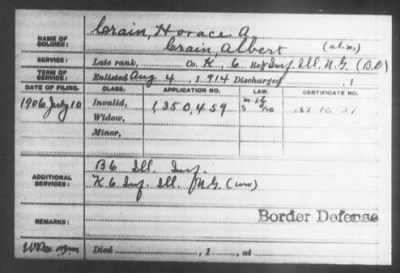 NAME OF SOLDIER: Crain, Horace A.
Crain, Albert (alias)
SERVICE: Late rank, Co. K, 6 Reg't Inf. Ill. N.G. (B.D)
TERM OF SERVICE: Enlisted Aug 4, 1914 Discharged , 1
DATE OF FILING. CLASS. APPLICATION NO. LAW. CERTIFICATE NO.
July 10 Invalid, 1,350,459
Widow,
Minor,
ADDITIONAL SERVICES: B 6 Ill. Inf.
K 6 Inf. Ill. N.G. (WW)
REMARKS: Border Defense
Died , 1 , at